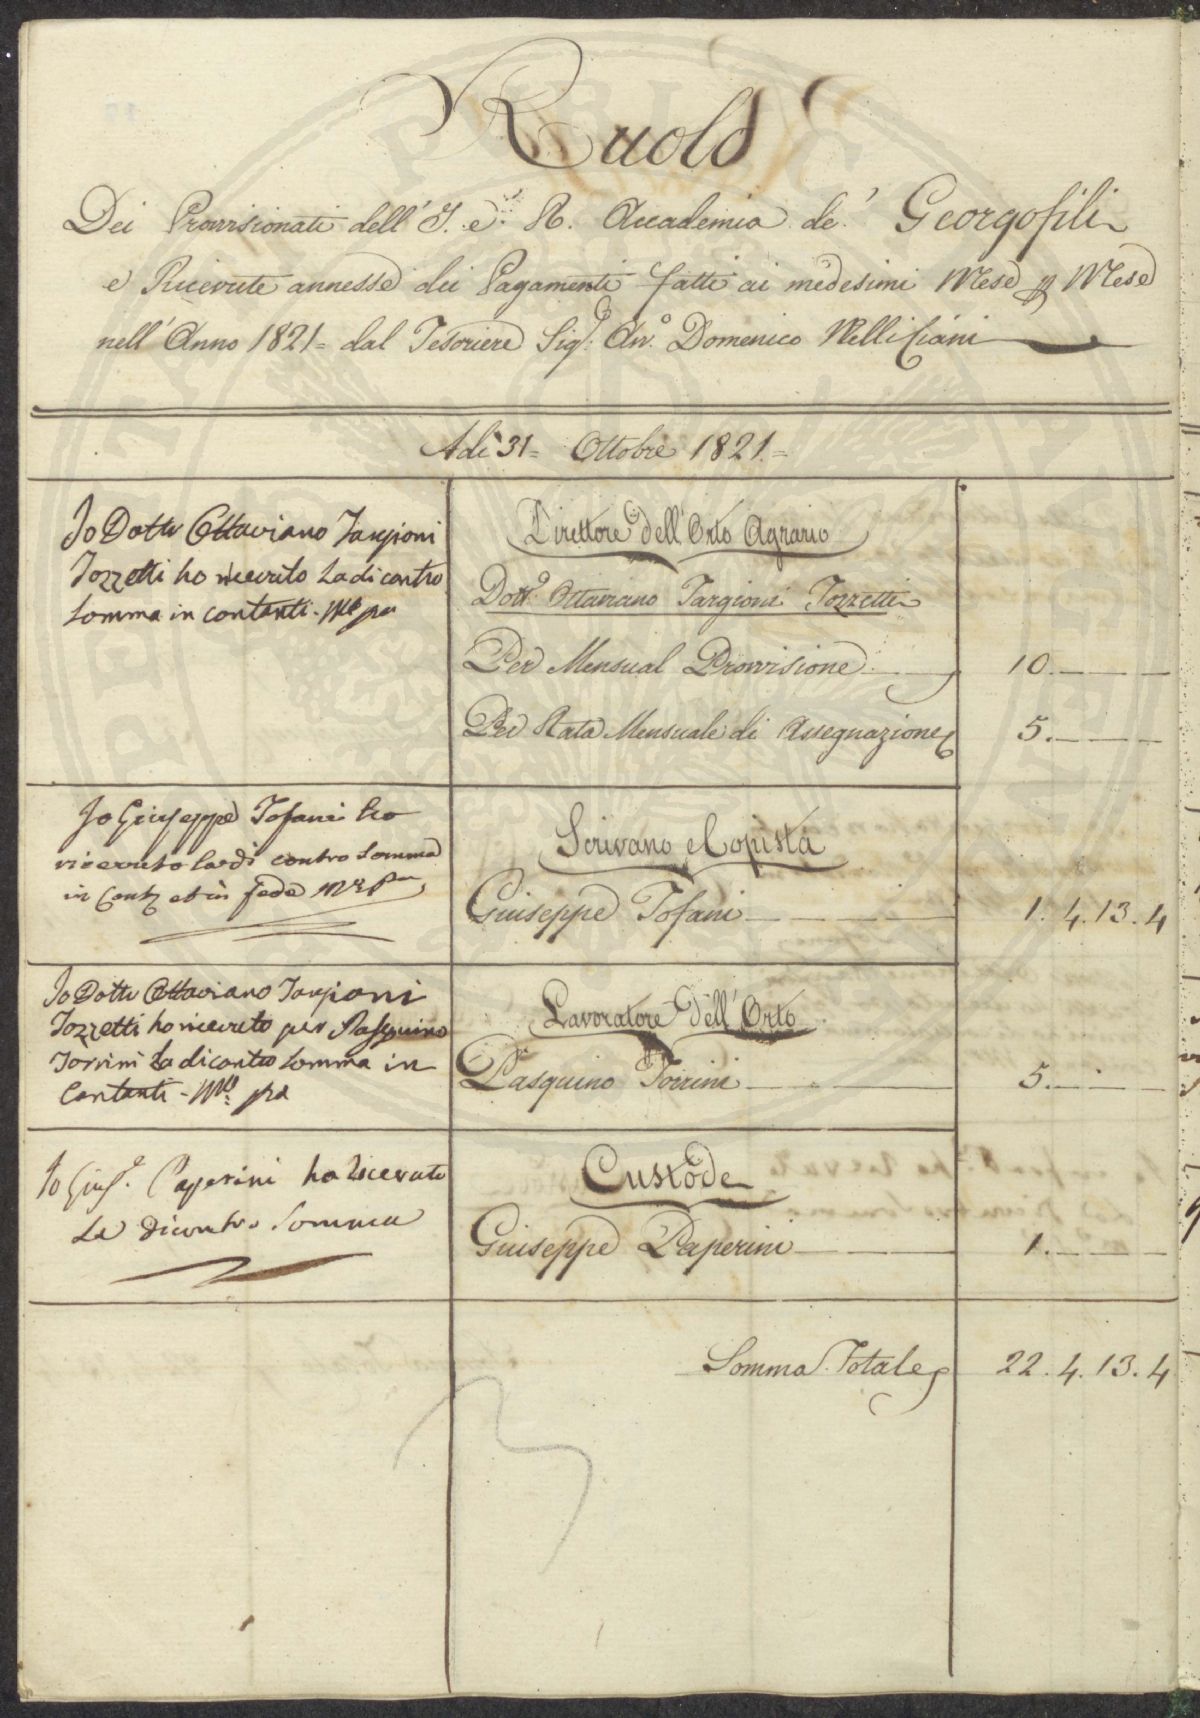 Ruolo
Dei Provvisionati dell' I. e R. Accademia de' Georgofili
e Ricevute annesse dei Pagamenti fatti ai medesimi Mese p Mese
nell' Anno 1821= dal Tesoriere Sig.e Avv.o Domenico Nelli Ciani
Adì 31= Ottobre 1821.=
Io Dottr Ottaviano Targioni
Tozzetti ho ricevuto La di contro
Somma in contanti - Mo pa
Direttore dell' Orto Agrario
Dott.e Ottaviano Targioni Tozzetti
Per Mensual Provvisione 10. — — —
Per Rata Mensuale di Assegnazione 5. — — —
Io Giuseppe Tofani ho
ricevuto la di contro Somma
in Conti et in fede Mo Pa
Scrivano e Copista
Giuseppe Tofani 1. 4. 13. 4
Io Dottr Ottaviano Targioni
Tozzetti ho ricevuto per Pasquino
Torrini La di contro Somma in
Contanti - Mo pa
Lavoratore dell' Orto
Pasquino Torrini 5. — — —
Io Gius.e Paperini ho Ricevuto
La dicontro Somma
Custode
Giuseppe Paperini 1. — — —
Somma Totale 22. 4. 13. 4